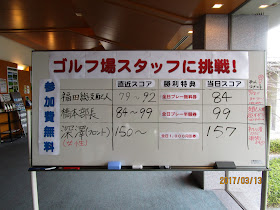 ゴルフ場スタッフに挑戦!
参加費無料
直近スコア 勝利特典 当日スコア
福田総支配人 79～92 全日プレー無料券 84
橋本部長 84～99 全日プレー半額券 99
深澤(フロント) 150～ 157
(女性)
2017/03/13